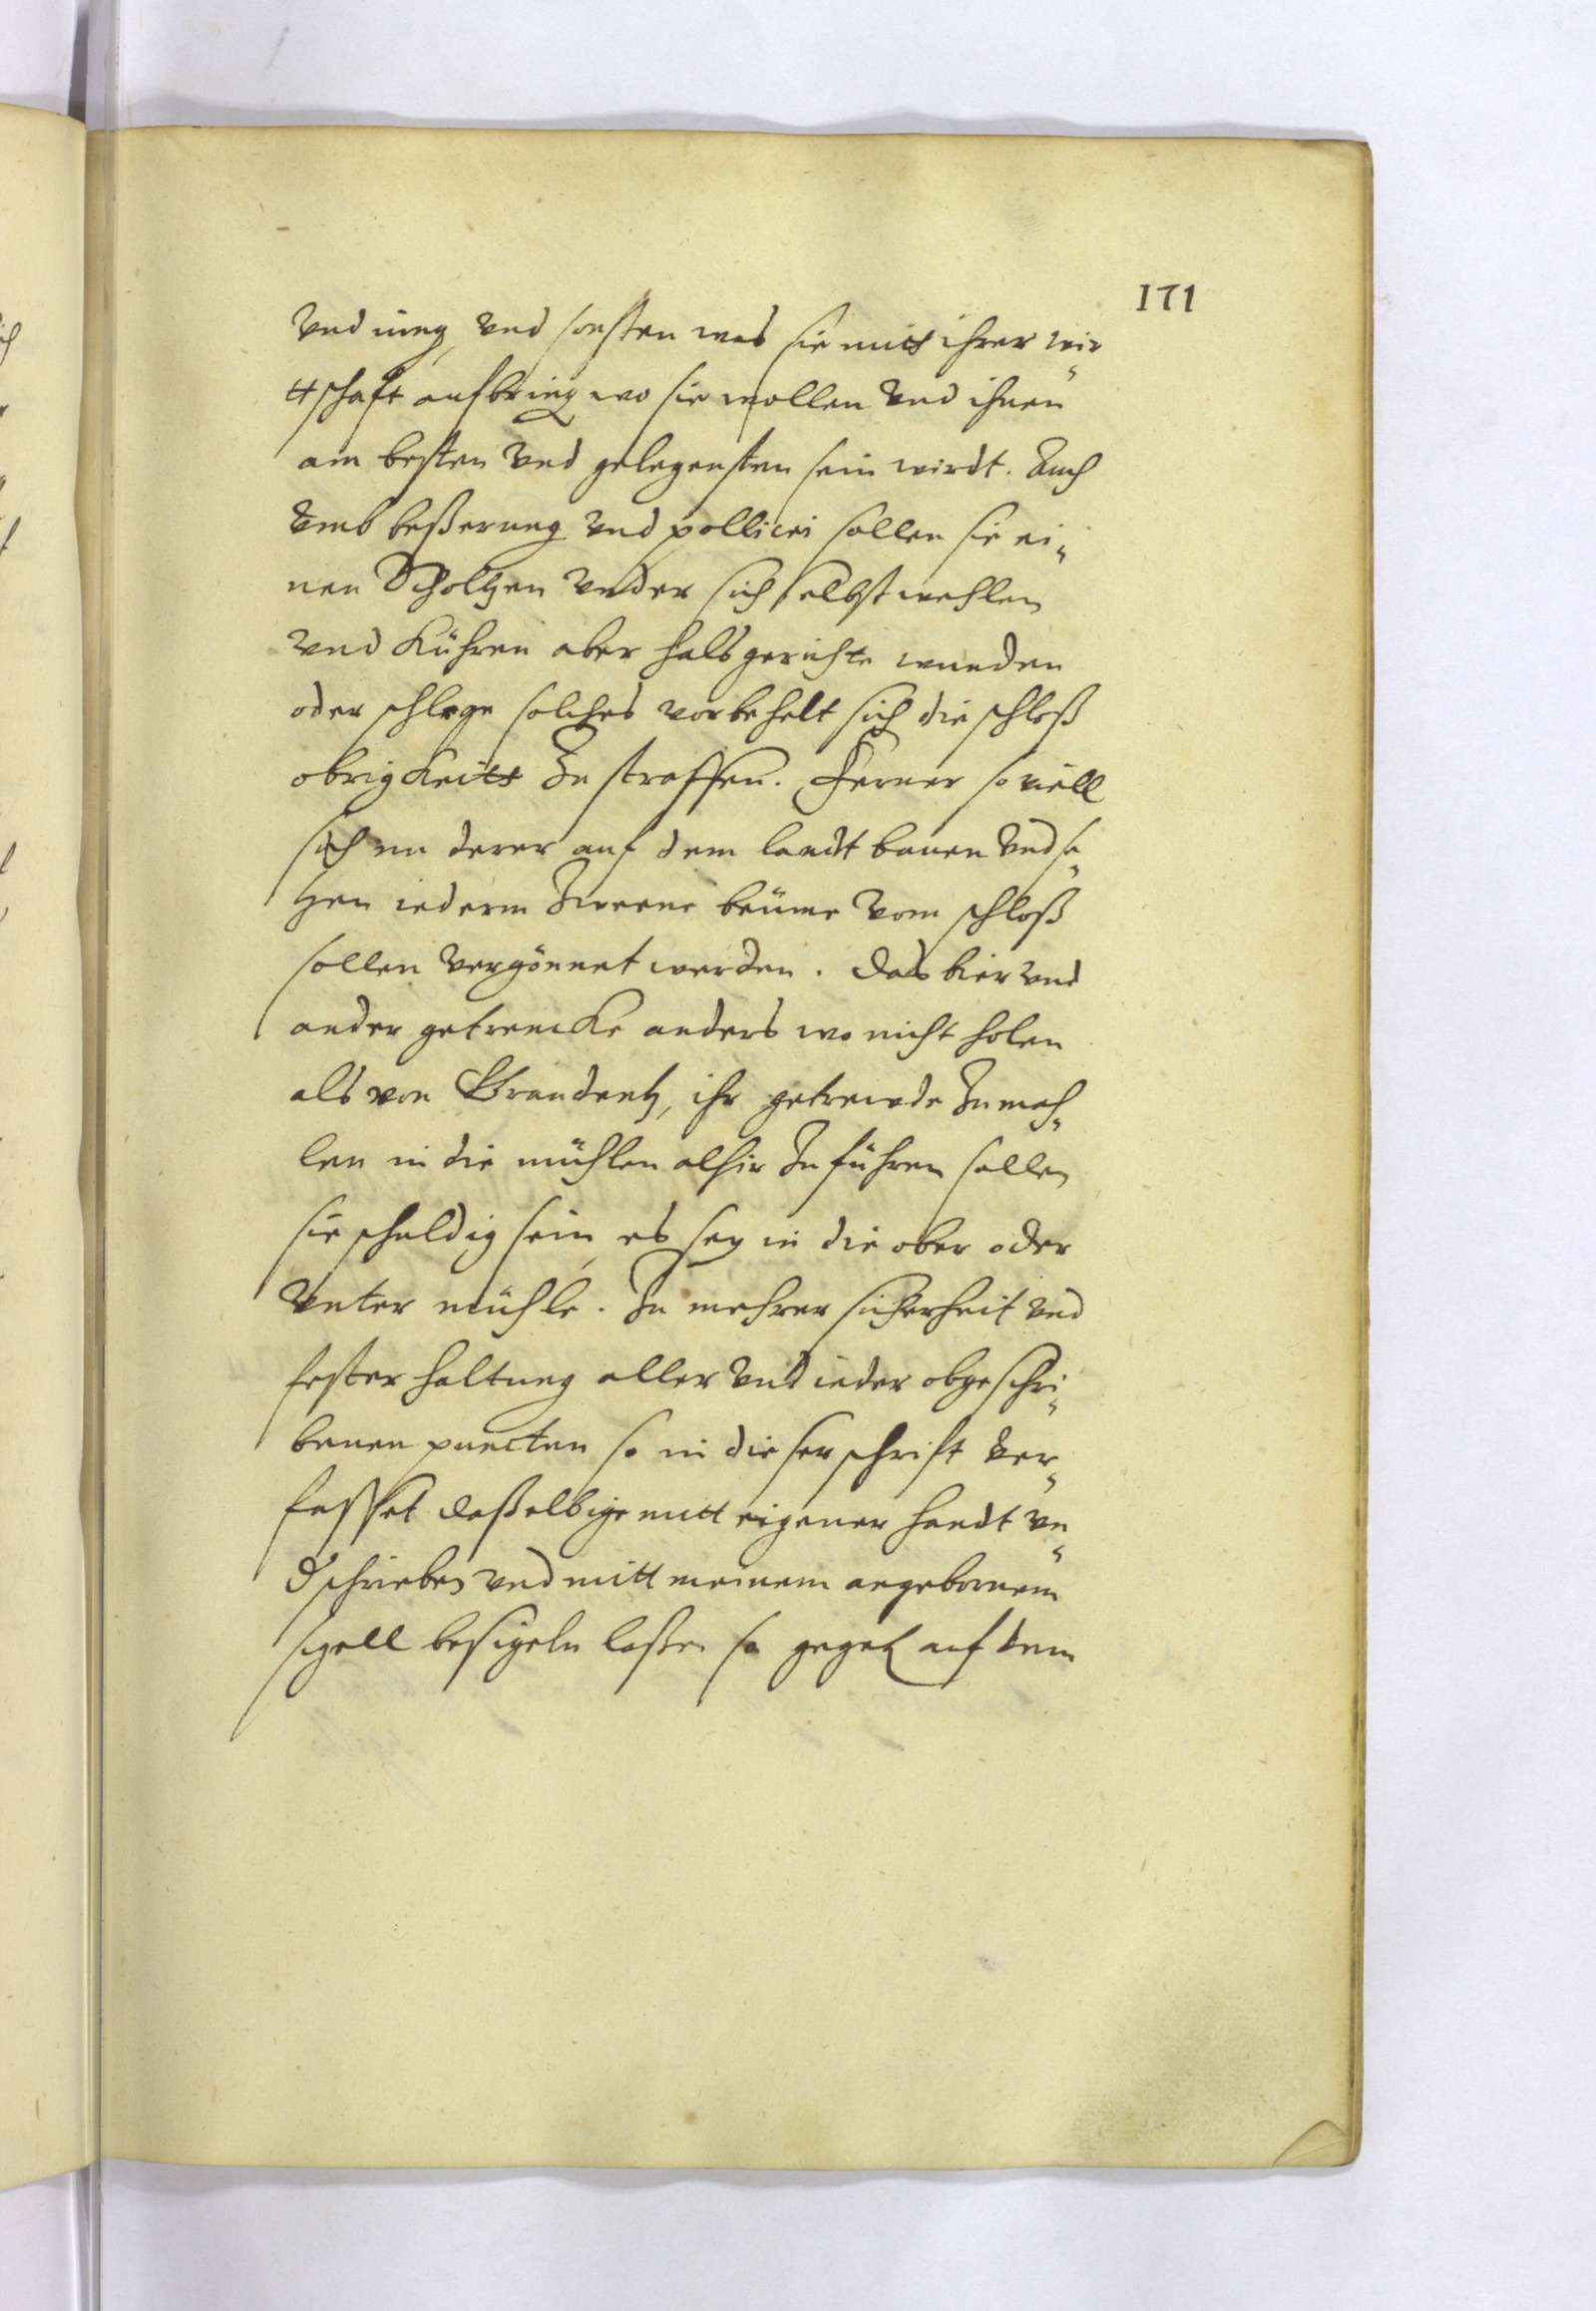 171
vnd nieng, vnd sonsten was sie mitt ihrer wir
ttschaft aufbring wo sie wollen vnd ihnen
am besten vnd gelegensten sein wirdt. Auch
vmb beßerung vnd pollicei sollen sie ei„
nen Scholtzen vnder sich selbst wehlen
vnd Kühren aber halsgerichte wunden
oder schlege solches vorbehelt sich die schloß
obrigkeitt zu straffen. Ferner so viell
sich nu derer auf dem landt bauen vnd se„
tzen iederm zweene beüme vom schloß
sollen vergönnet werden. Das bier vnd
ander getrencke anders wo nicht holen
als von Graudentz, ihr getreide zu mah„
len in die mühlen alhir zu führen sollen
sie schuldig sein, es sey in die ober oder
vnter mühle. Zu mehrer sicherheit vnd
fester haltung aller vnd ieder obgeschri„
benen puncten so in dieser schrift ver„
fasset daßelbige mitt eigener handt vn„
dschrieben vnd mitt meinem angebornem
sigell besigeln laßen so gegeb auf dem